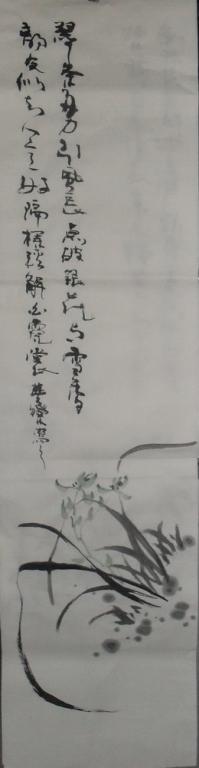 翠条多力引風長点破銀花玉雪香
韵友似知人意好隔欄輕解白霓裳